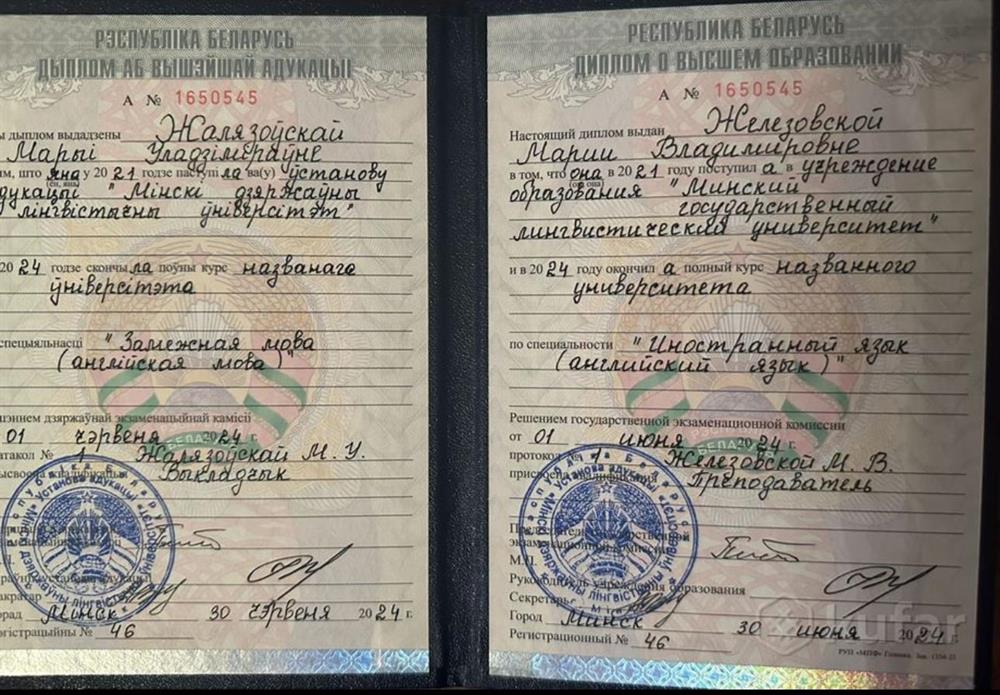 РЭСПУБЛІКА БЕЛАРУСЬ
ДЫПЛОМ АБ ВЫШЭЙШАЙ АДУКАЦЫІ
А № 1650545
ы дыплом выдадзены Жалязоўскай
Марыі Уладзіміраўне
ым, што яна у 2021 годзе паступіла ва(у) ўстанову
(ён, яна)
дукацыі "Мінскі дзяржаўны
лінгвістычны ўніверсітэт"
20 24 годзе скончыла поўны курс названага
ўніверсітэта
спецыяльнасці "Замежная мова
(англійская мова)"
шэннем дзяржаўнай экзаменацыйнай камісіі
01 чэрвеня 2024 г.
атакол № 1 Жалязоўскай М. У.
Выкладчык
Мінск 30 чэрвеня 2024 г.
эгістрацыйны № 46
РЕСПУБЛИКА БЕЛАРУСЬ
ДИПЛОМ О ВЫСШЕМ ОБРАЗОВАНИИ
А № 1650545
Настоящий диплом выдан Железовской
Марии Владимировне
в том, что она в 2021 году поступила в учреждение
(он, она)
образования "Минский
государственный
лингвистический университет"
и в 2024 году окончила полный курс названного
университета
по специальности "Иностранный язык
(английский язык)"
Решением государственной экзаменационной комиссии
от 01 июня 2024 г.
протокол № 1 Железовской М. В.
присвоена квалификация Преподаватель
М.П.
Руководитель учреждения образования
Секретарь
Город Минск 30 июня 2024 г.
Регистрационный № 46
kufar